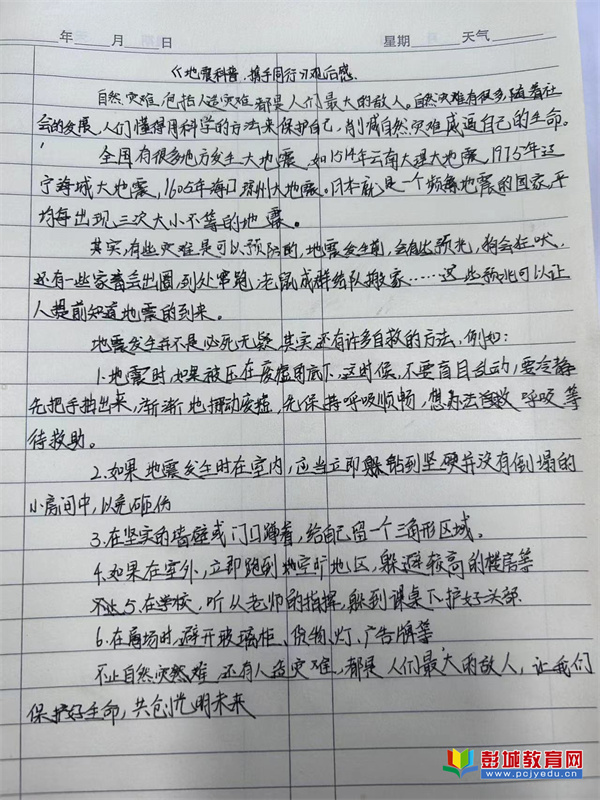 年 月 日 星期 天气
《地震科普,携手同行》观后感
自然灾难,包括人造灾难都是人们最大的敌人。自然灾难有很多,随着社
会的发展,人们懂得用科学的方法来保护自己,削减自然灾难威逼自己的生命。
全国有很多地方发生大地震,如1514年云南大理大地震,1975年辽
宁海城大地震,1605年海口琼州大地震。日本就是一个频繁地震的国家,平
均每出现三次大小不等的地震。
其实,有些灾难是可以预防的,地震发生前,会有些预兆,狗会狂吠,
还有一些家畜会出圈,到处窜跑,老鼠成群结队搬家……这些预兆可以让
人提前知道地震的到来。
地震发生并不是必死无疑,其实还有许多自救的方法,例如:
1.地震时,如果被压在废墟的底下,这时候,不要盲目乱动,要冷静
先把手抽出来,渐渐地挪动废墟,先保持呼吸顺畅,想办法 呼吸等
待救助。
2.如果地震发生时在室内,应当立即躲钻到坚硬并没有倒塌的
小房间中,以免砸伤
3.在坚实的墙壁或门口蹲着,给自己留一个三角形区域。
4.如果在室外,立即跑到地空旷地区,躲避较高的楼房等
不止5.在学校,听从老师的指挥,躲到课桌下护好头部
6.在商场时,避开玻璃柜、货物、灯、广告牌等
不止自然灾然难,还有人造灾难,都是人们最大的敌人,让我们
保护好生命,共创光明未来
彭城教育网
www.pcjyedu.cn